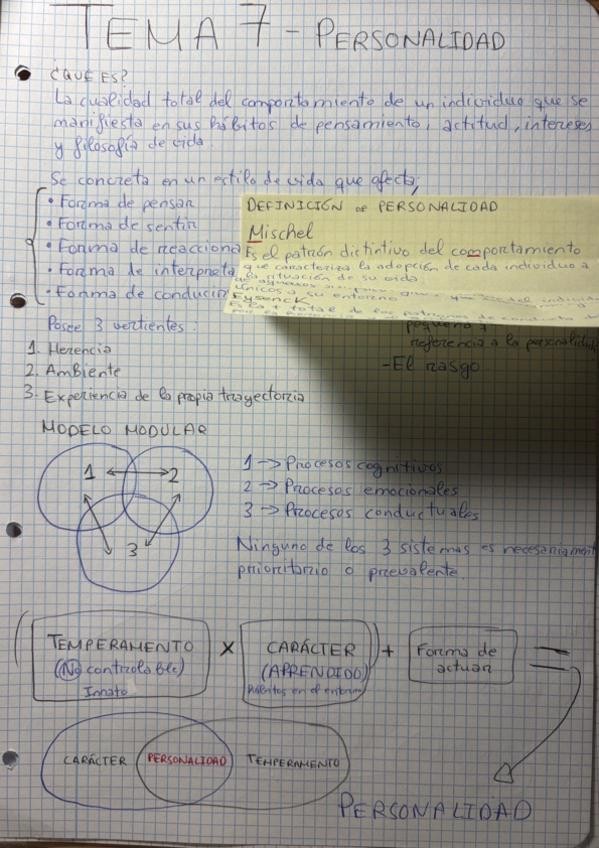 TEMA 7 - PERSONALIDAD
¿QUÉ ES?
La cualidad total del comportamiento de un individuo que se
manifiesta en sus hábitos de pensamiento, actitud, intereses
y filosofía de vida.
Se concreta en un estilo de vida que afecta;
• Forma de pensar
• Forma de sentir
• Forma de reacciona
• Forma de interpreta
• Forma de conducir
DEFINICIÓN DE PERSONALIDAD
Mischel
Es el patrón dictintivo del comportamiento
que caracteriza la adopción de cada individuo a
la situación de su vida
Eysenck
Posee 3 vertientes:
1. Herencia
2. Ambiente
3. Experiencia de la propia trayectoria
pequeno
referencia a la personalidad
-El rasgo
MODELO MODULAR
1 2
3
1 -> Procesos cognitivos
2 -> Procesos emocionales
3 -> Procesos conductuales
Ninguno de los 3 sistemas es necesariament
prioritario o prevalente.
TEMPERAMENTO
(No controlable)
Innato
x
CARÁCTER
(APRENDIDO)
Hábitos en el entorno
+
Forma de
actuar
=
CARÁCTER PERSONALIDAD TEMPERAMENTO
PERSONALIDAD